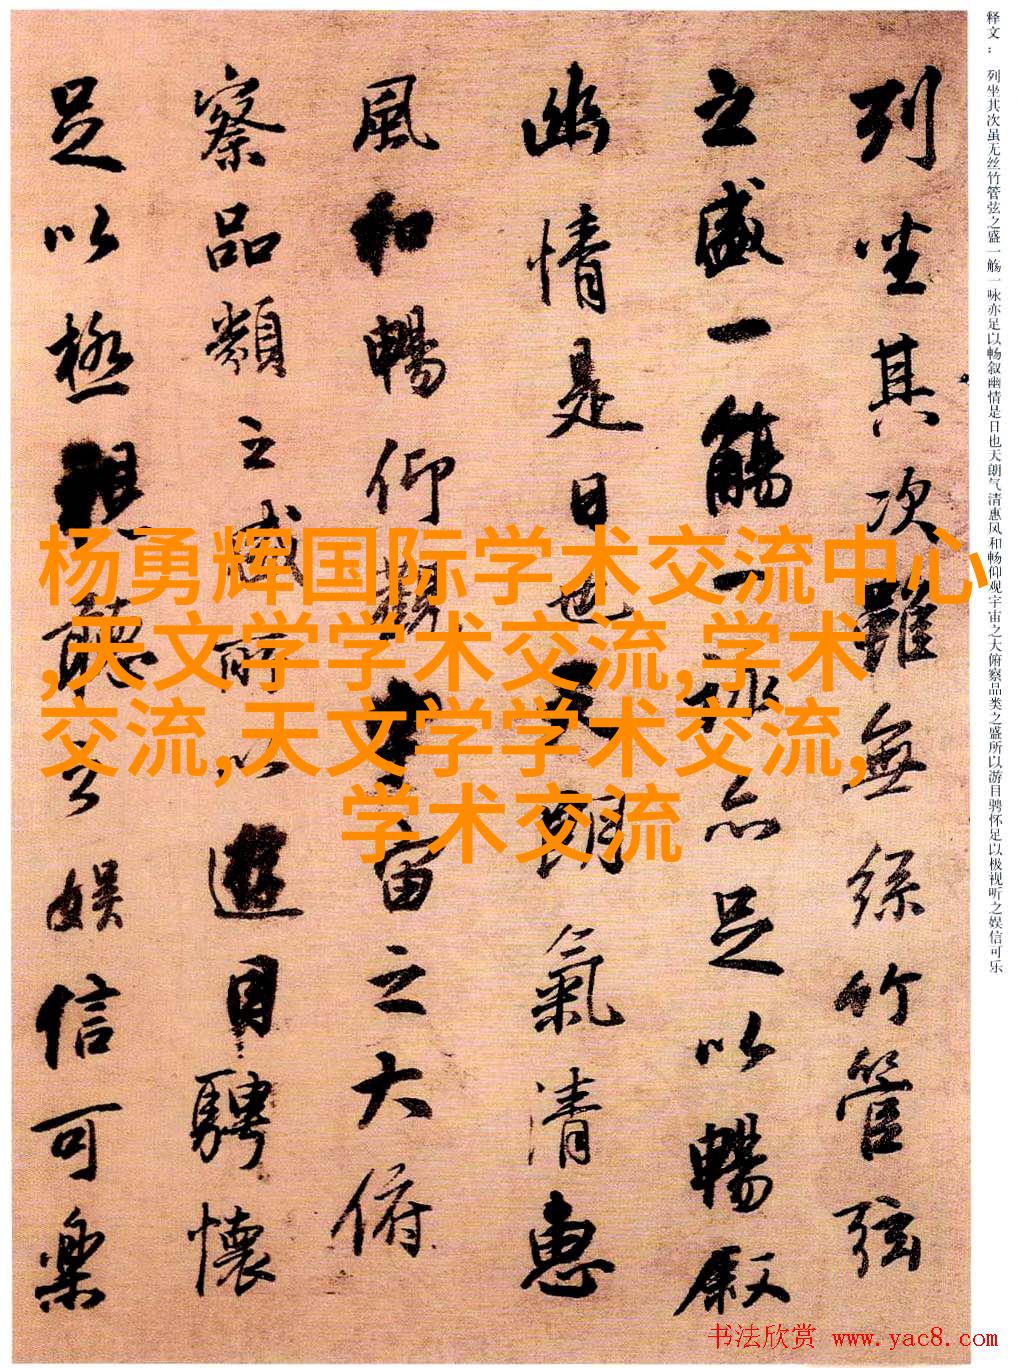 释文：列坐其次虽无丝竹管弦之盛一觞一咏亦足以畅叙幽情是日也天朗气清惠风和畅仰观宇宙之大俯察品类之盛所以游目骋怀足以极视听之娱信可乐
列坐其次雖無絲竹管弦
之盛一觴一詠亦足以暢叙
幽情是日也天朗氣清惠
風和暢仰觀宇宙之大俯
察品類之盛所以遊目騁懷
足以極視聽之娛信可樂
杨勇辉国际学术交流中心
,天文学学术交流,学术
交流,天文学学术交流,
学术交流
书法欣赏 www.yac8.com